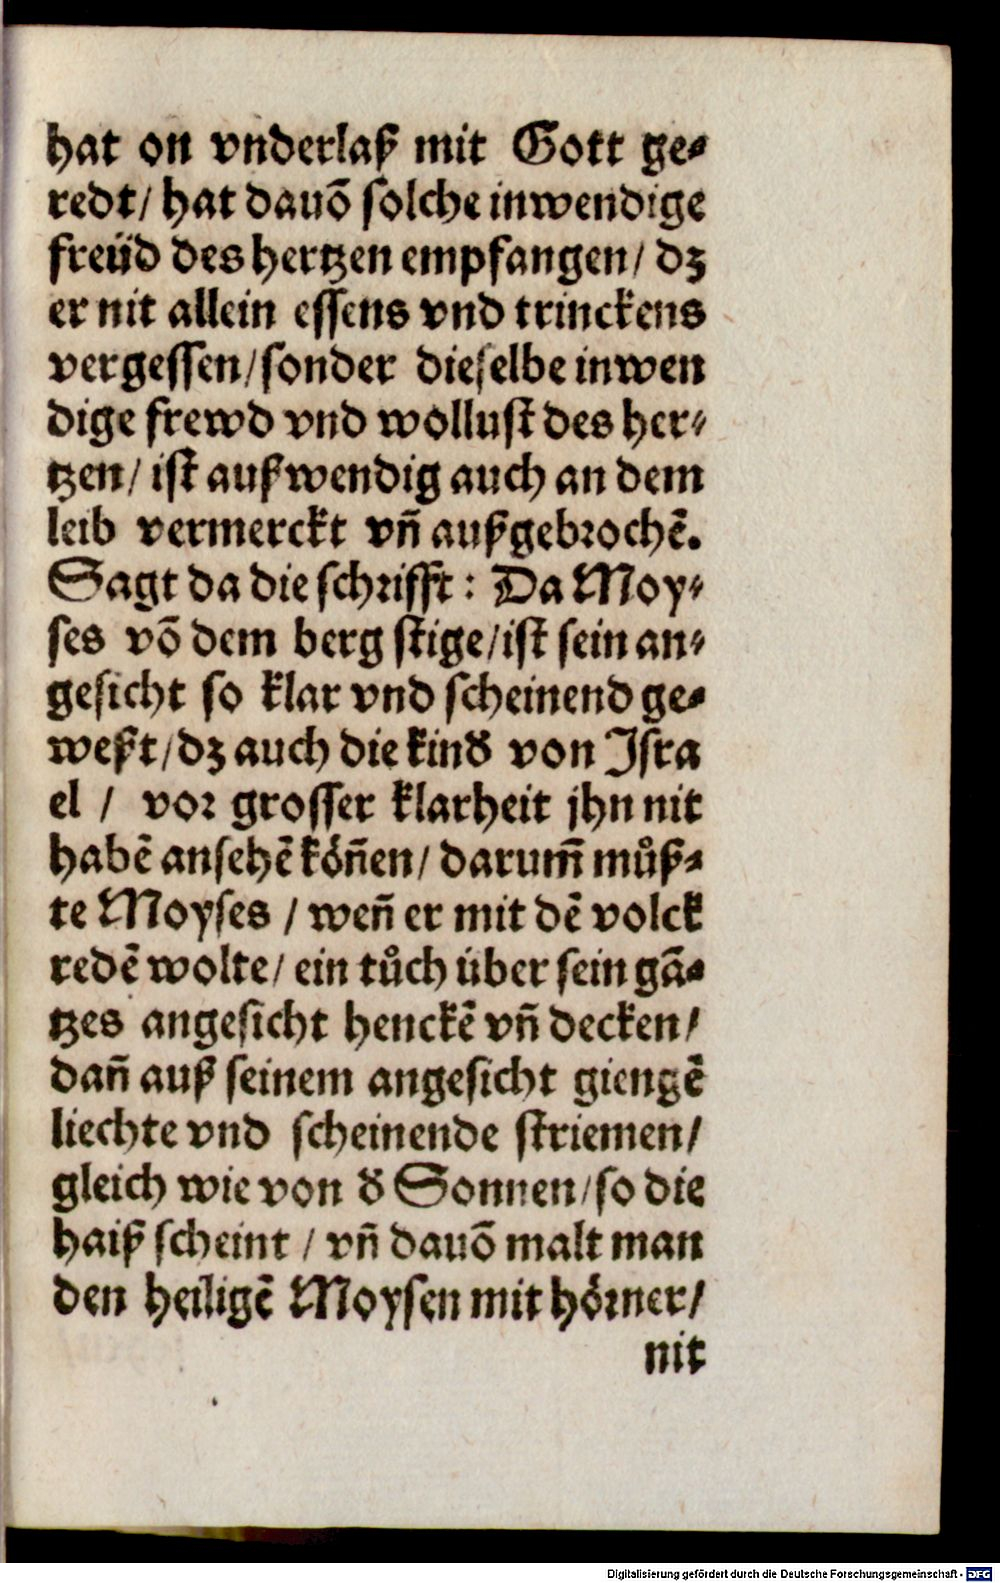 hat on vnderlaß mit Gott ge-
redt/ hat dauõ solche inwendige
freüd des hertzen empfangen/ dz
er nit allein essens vnd trinckens
vergessen/sonder dieselbe inwen
dige frewd vnd wollust des her-
tzen/ ist außwendig auch an dem
leib vermerckt vñ außgebrochẽ.
Sagt da die schrifft: Da Moy-
ses võ dem berg stige/ist sein an-
gesicht so klar vnd scheinend ge-
weßt/dz auch die kinđ von Isra
el / vor grosser klarheit jhn nit
habẽ ansehẽ köñen/ darum̃ můß-
te Moyses / weñ er mit dẽ volck
redẽ wolte/ ein tůch über sein gã-
tzes angesicht henckẽ vñ decken/
dañ auß seinem angesicht giengẽ
liechte vnd scheinende striemen/
gleich wie von đ Sonnen/so die
haiß scheint / vñ dauõ malt man
den heiligẽ Moysen mit hörner/
nit
Digitalisierung gefördert durch die Deutsche Forschungsgemeinschaft - DFG